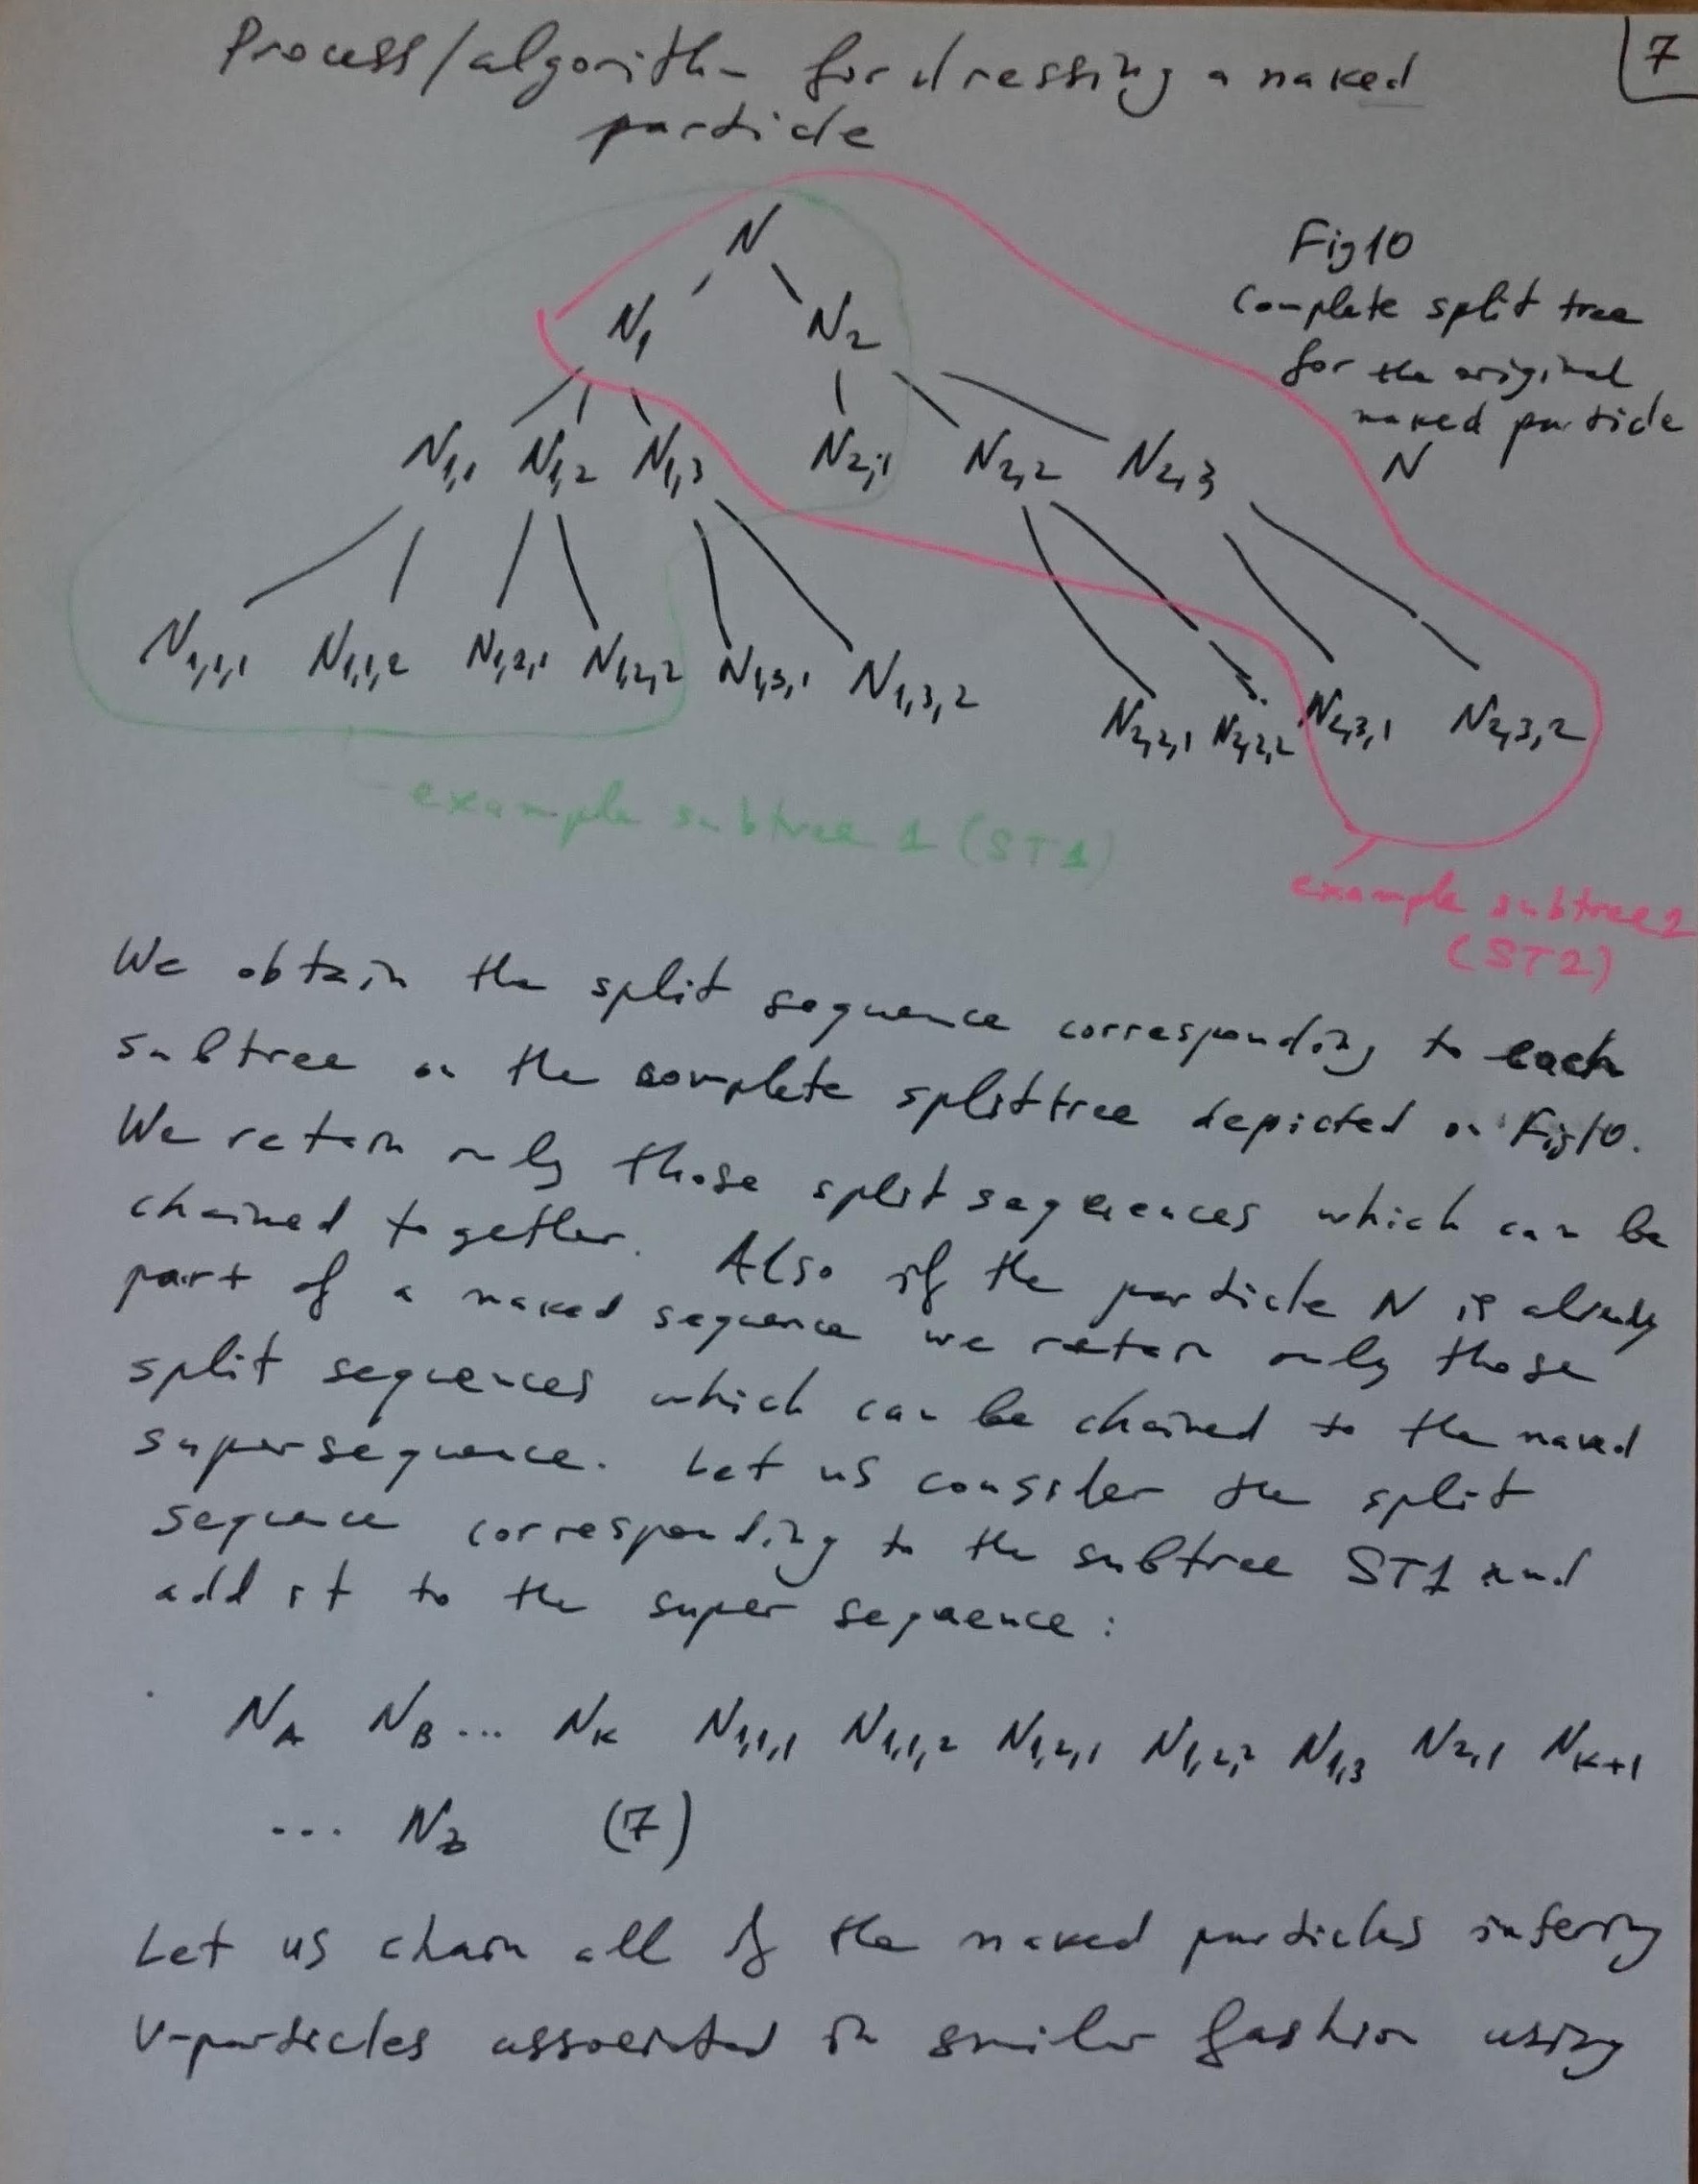 7
Process/algorithm for dressing a naked
particle
N
Fig 10
N1 N2
Complete split tree
for the original
naked particle
N
N1,1 N1,2 N1,3 N2,1 N2,2 N2,3
N1,1,1 N1,1,2 N1,2,1 N1,2,2 N1,3,1 N1,3,2 N2,2,1 N2,2,2 N2,3,1 N2,3,2
example subtree 1 (ST1)
example subtree 2
(ST2)
We obtain the split sequence corresponding to each
subtree on the complete split tree depicted on Fig 10.
We retain only those split sequences which can be
chained together. Also if the particle N is already
part of a naked sequence we retain only those
split sequences which can be chained to the naked
supersequence. Let us consider the split
sequence corresponding to the subtree ST1 and
add it to the super sequence:
NA NB ... NK N1,1,1 N1,1,2 N1,2,1 N1,2,2 N1,3 N2,1 NK+1
... NZ (7)
Let us chain all of the naked particles
V-particles associated in similar fashion using